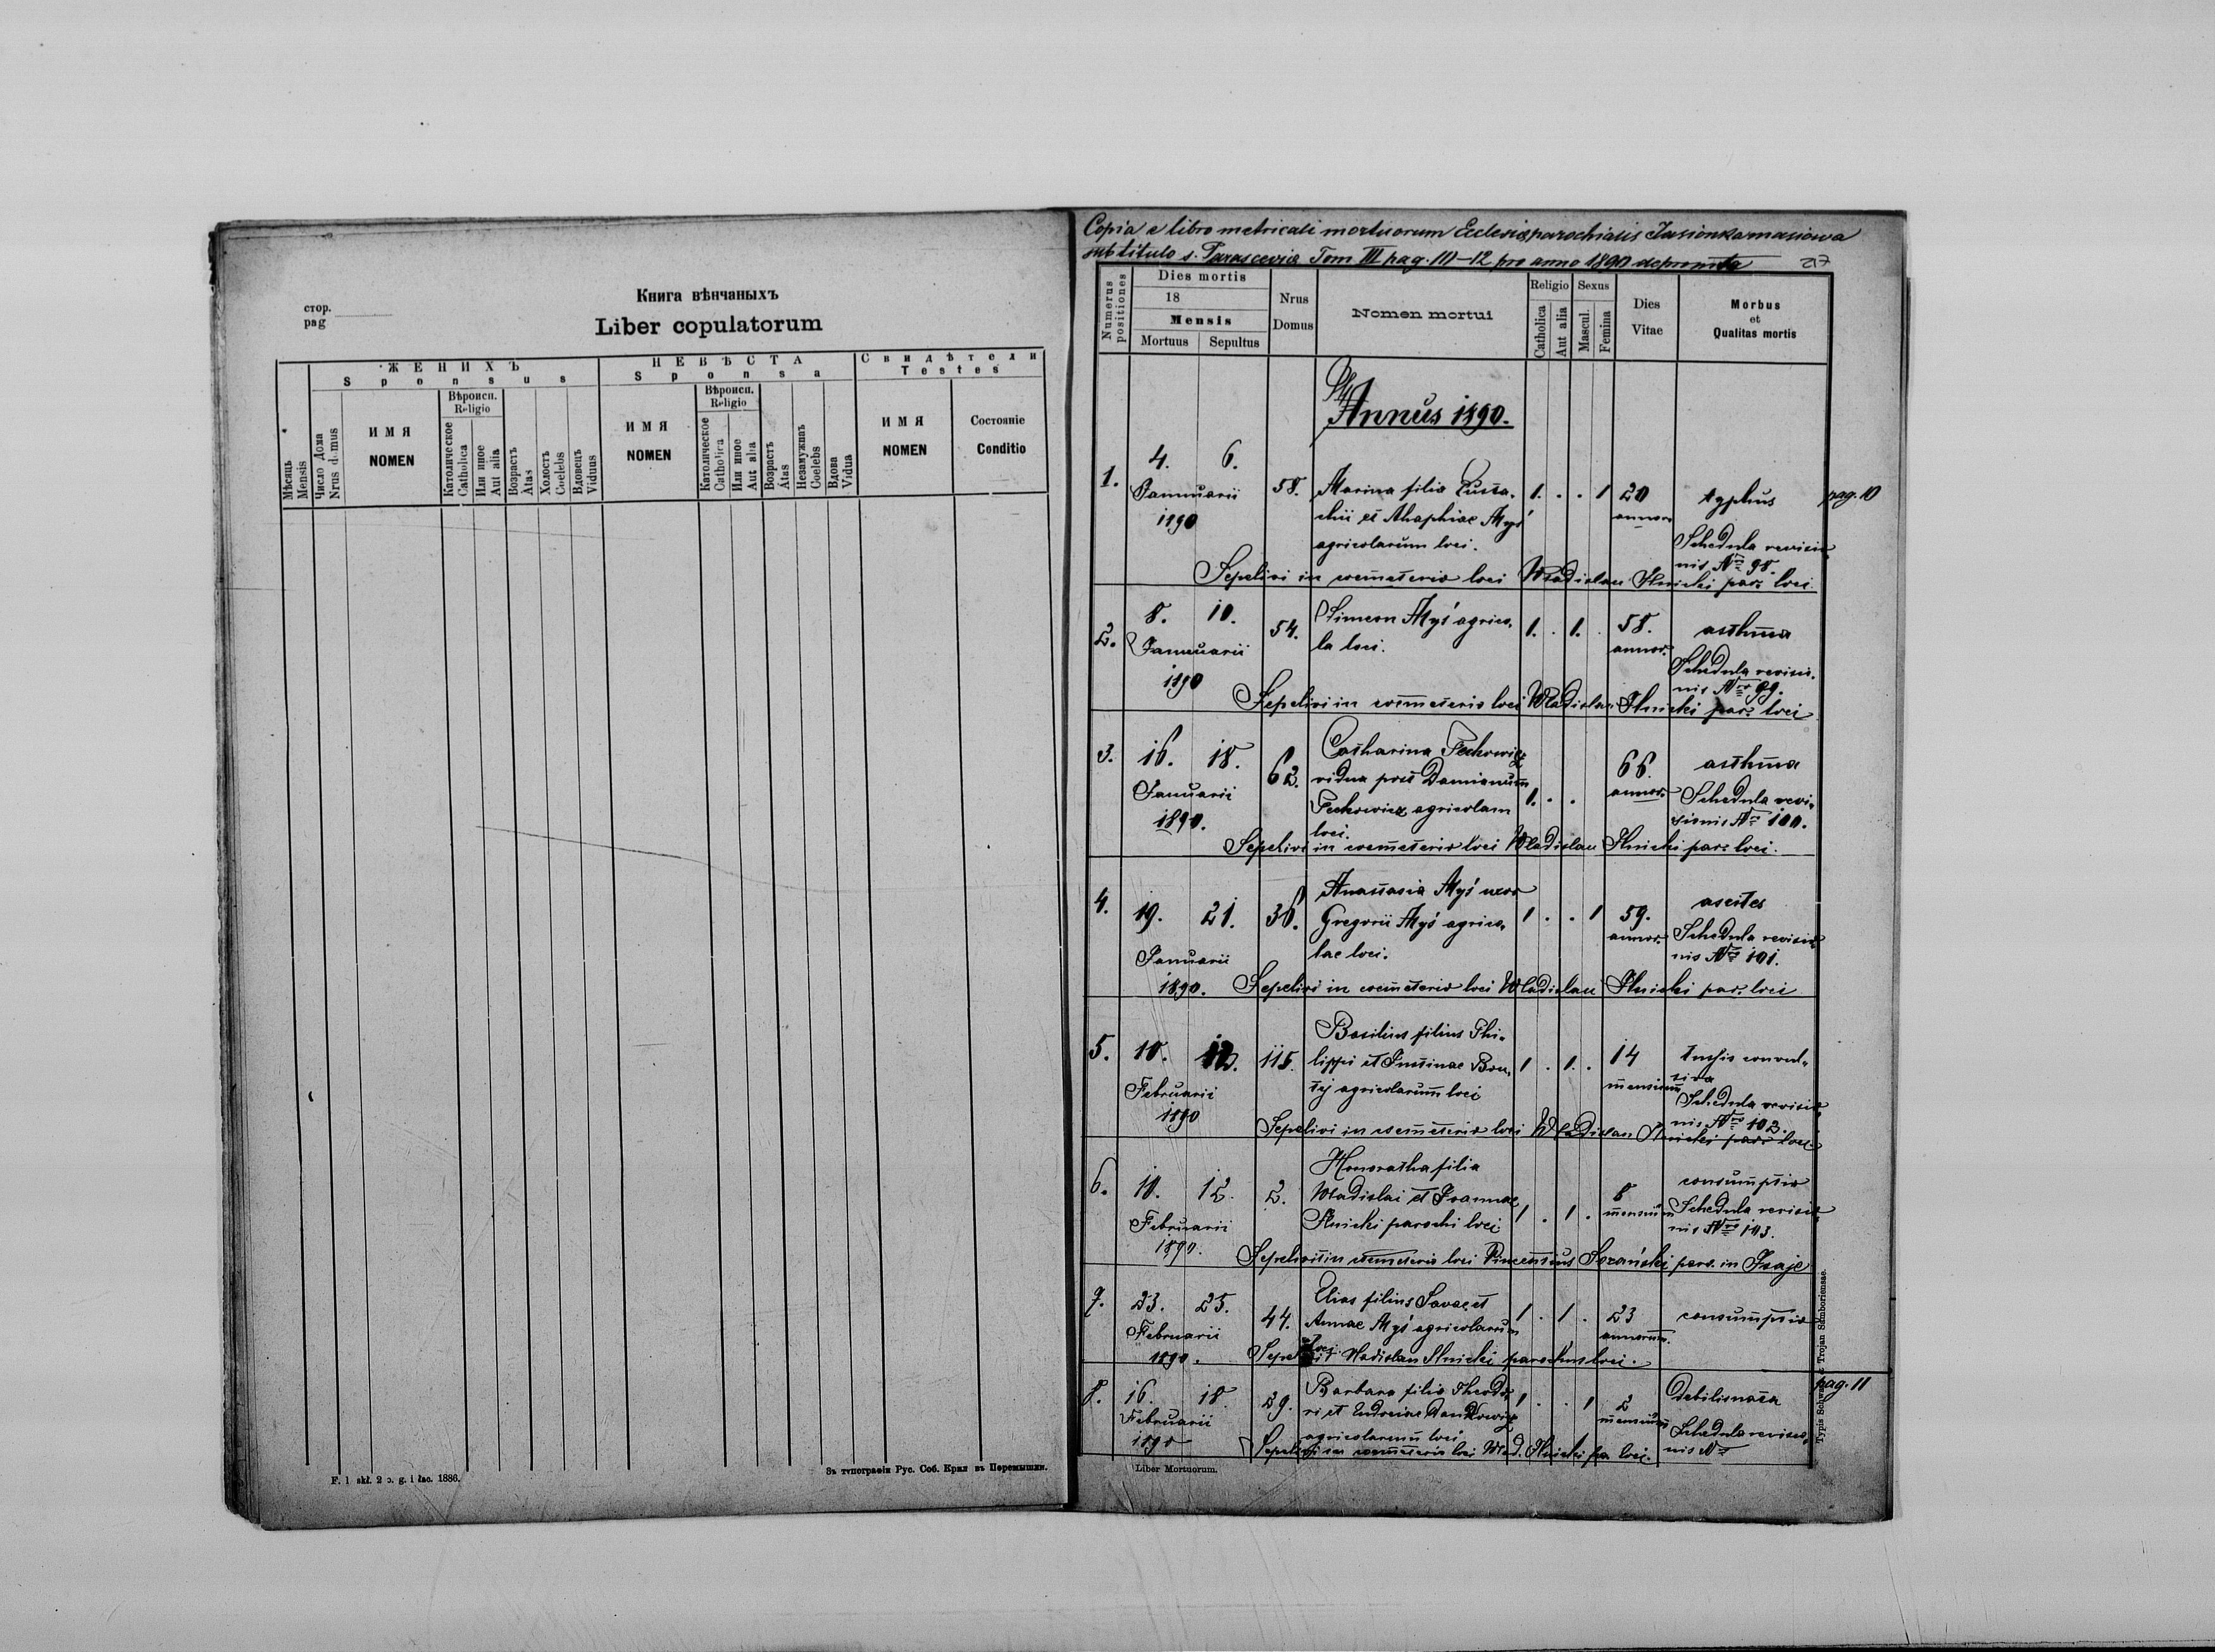 стор.
pag
Книга вѣнчаныхъ
Liber copulatorum
ЖЕНИХЪ
Sponsus
НЕВѢСТА
Sponsa
Свидѣтели
Testes
Мѣсяць
Mensis
Число Дома
Nrus domus
ИМЯ
NOMEN
Вѣроисп.
Religio
Католическое
Catholica
Или иное
Aut alia
Возрастъ
Atas
Холостъ
Coelebs
Вдовецъ
Viduus
ИМЯ
NOMEN
Вѣроисп.
Religio
Католическое
Catholica
Или иное
Aut alia
Возрастъ
Atas
Незамужняъ
Coelebs
Вдова
Vidua
ИМЯ
NOMEN
Состояніе
Conditio
Зъ типографіи Рус. Соб. Крил. въ Перемышли.
Copia e libro metricali mortuorum Ecclesiæ parochialis Jasionkamasiowa
sub titulo s. Parasceviæ Tom III pag. 10-12 pro anno 1890 deprompta
217
Numerus
positiones
Dies mortis
18
Mensis
Mortuus
Sepultus
Nrus
Domus
Nomen mortui
Religio
Catholica
Aut alia
Sexus
Mascul.
Femina
Dies
Vitae
Morbus
et
Qualitas mortis
Annus 1890.
1. 4. 6. 58. Marina filia Eusta- 1. . . 1 20 typhus pag. 10
Januarii chii et Ahaphiae Myś annor.
1890 agricolarum loci. Schedula revisio-
nis Nro 98.
Sepelivi in coemeterio loci Wladislau Ilnicki par. loci.
2. 8. 10. 54. Simeon Myś agrico- 1. . 1. . 58. asthma
Januarii la loci. annor.
1890 Schedula revisio-
nis Nro 99.
Sepelivi in coemeterio loci Wladislau Ilnicki par. loci
3. 16. 18. 62. Catharina Fechowicz 66. asthma
Januarii vidua post Damianum 1. . . annor. Schedula revi-
1890. Fechowicz agricolam sionis Nro 100.
loci.
Sepelivi in coemeterio loci Wladislau Ilnicki par. loci.
4. 19. 21. 36. Anastasia Myś uxor 1 . . 1 59. ascites
Gregorii Myś agrico- annor. Schedula revisio-
Januarii lae loci. nis Nro 101.
1890. Sepelivi in coemeterio loci Wladislau Ilnicki par. loci
5. 10. 12. 115. Basilius filius Phi- 1 . 1. . 14 tussis convul-
Februarii lippi et Justinae mensium siva
1890 agricolarum loci Schedula revisio-
nis Nro 102.
Sepelivi in coemeterio loci Wladislau Ilnicki par. loci
6. 10. 12. 2. Honoratha filia 1 . 1 . 8 consumptio
Februarii Wladislai et Joannae mensium Schedula revisio-
1890. Ilnicki parochi loci nis Nro 103.
Sepelivit in coemeterio loci Vincentius Sozański paro. in Isaje
7. 23. 25. 44. Elias filius Savae et 1 . 1 . 23 consumptio
Februarii Annae Myś agricolarum annorum.
1890. loci.
Sepelivit Wladislau Ilnicki parochus loci.
8. 16. 18. 29. Barbara filia Theodo- 1 . . 1 2 debilis nata pag. 11
Februarii ri et Eudociae mensium
1890 agricolarum loci Schedula revisio-
nis Nro
Sepelivi in coemeterio loci Wlad. Ilnicki pa. loci.
Liber Mortuorum.
Typis Schwarz et Trojan Samboriensae.